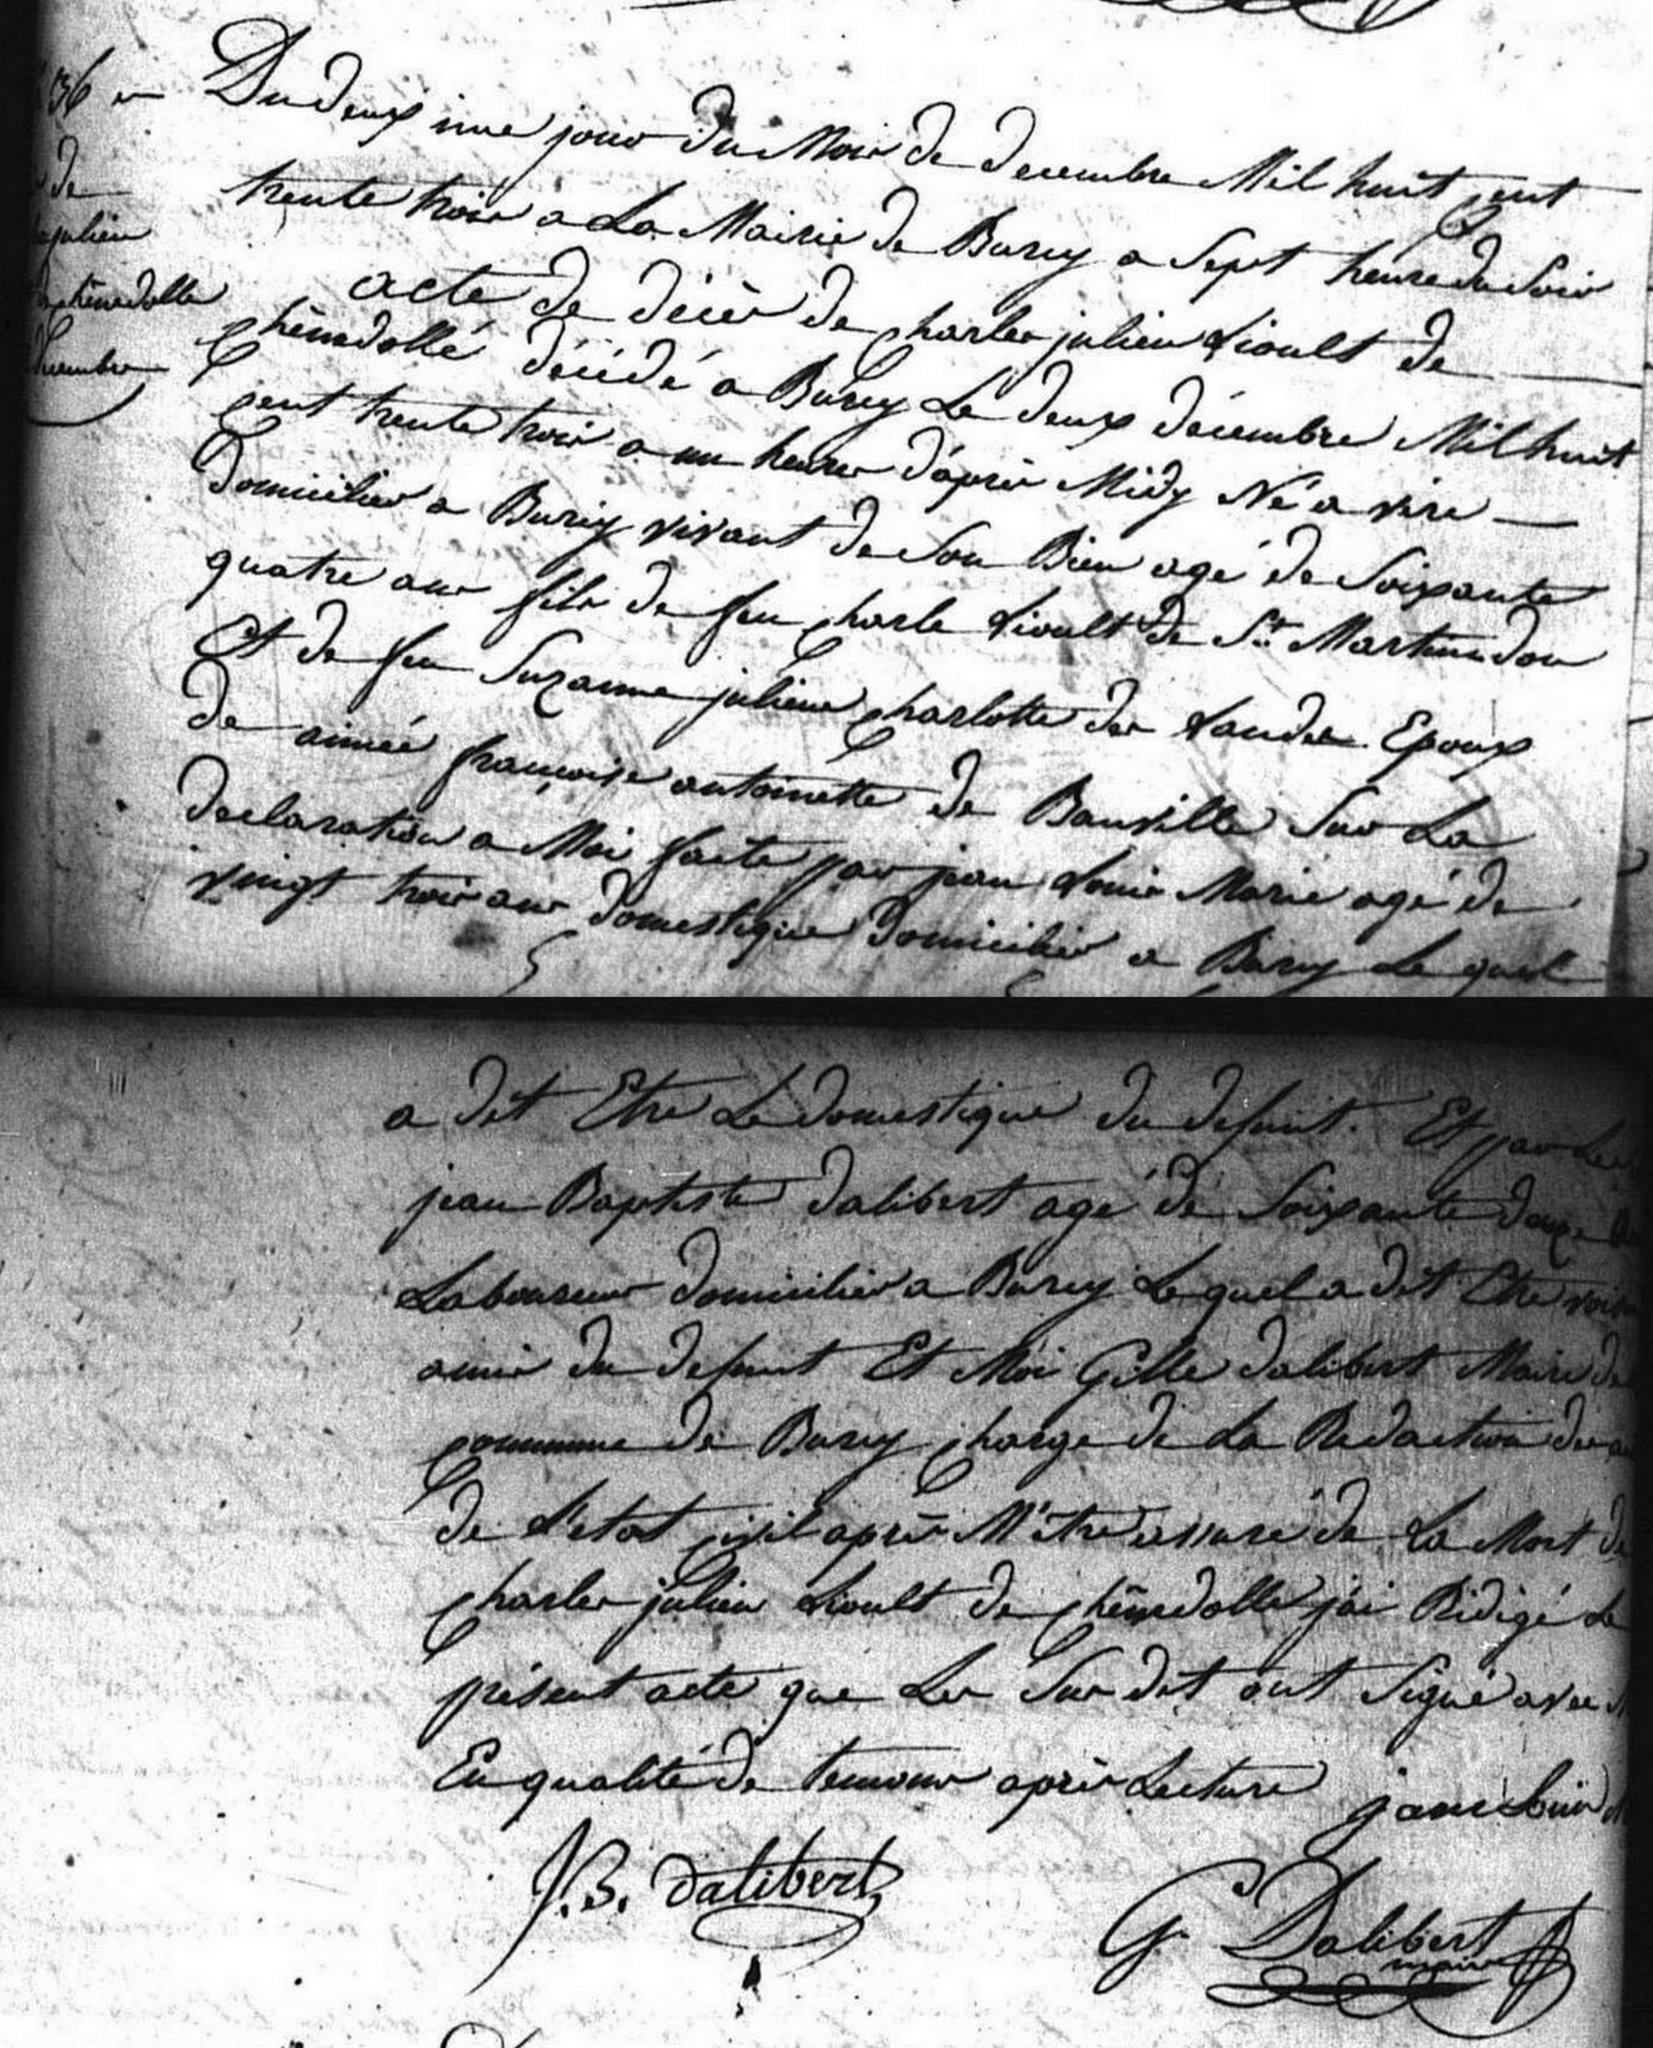 36
de
julien
chênedolle
décembre
Du deuxieme jour du Mois de decembre Mil huit cent
trente trois a La Mairie de Burcy a Sept heure du Soir
acte de décès de charles julien Lioult de
chênedollé décédé a Burcy Le deux décembre Mil huit
cent trente trois a un heures d'après Midy Né a vire
domicilier a Burcy vivant de Son Bien agé de Soixante
quatre ans fils de feu charle Lioult de St Martindon
Et de feu Suzanne juliene charlotte des Landes Epoux
de aimée françoise antoinette de Banville Sur La
declaration a Moi faite par jean Louis Marie agé de
vingt trois ans domestique domicilier a Burcy Le quel
a dit Etre Le domestique du defunt. Et par Le
jean Baptiste dalibert agé de Soixante douze
Laboureur domicilier a Burcy Le quel a dit Etre voisin
amis du defunt Et Moi Gille dalibert Maire de
commune de Burcy charge de La Redaction des
de L'etat civil après M'être assuré de La Mort de
charles julien Lioult de chênedolle j'ai Rédigé Le
présent acte que Les Sus dit ont Signé avec
En qualité de temoins après Lecture jean Louis
J.B. dalibert
G Dalibert
maire